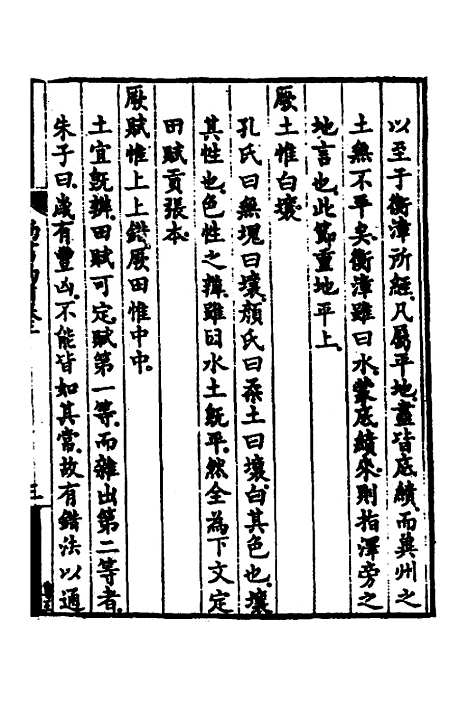 以至于衡漳所經凡屬平地盡皆底績而冀州之
土無不平矣衡漳雖曰水蒙底績來則指澤旁之
地言也此節重地平上
厥土惟白壤
孔氏曰無塊曰壤顏氏曰柔土曰壤白其色也壤
其性也色性之辨雖因水土既平然全為下文定
田賦貢張本
厥賦惟上上錯厥田惟中中
土宜既辨田賦可定賦第一等而雜出第二等者
朱子曰歲有豐凶不能皆如其當故有錯法以通